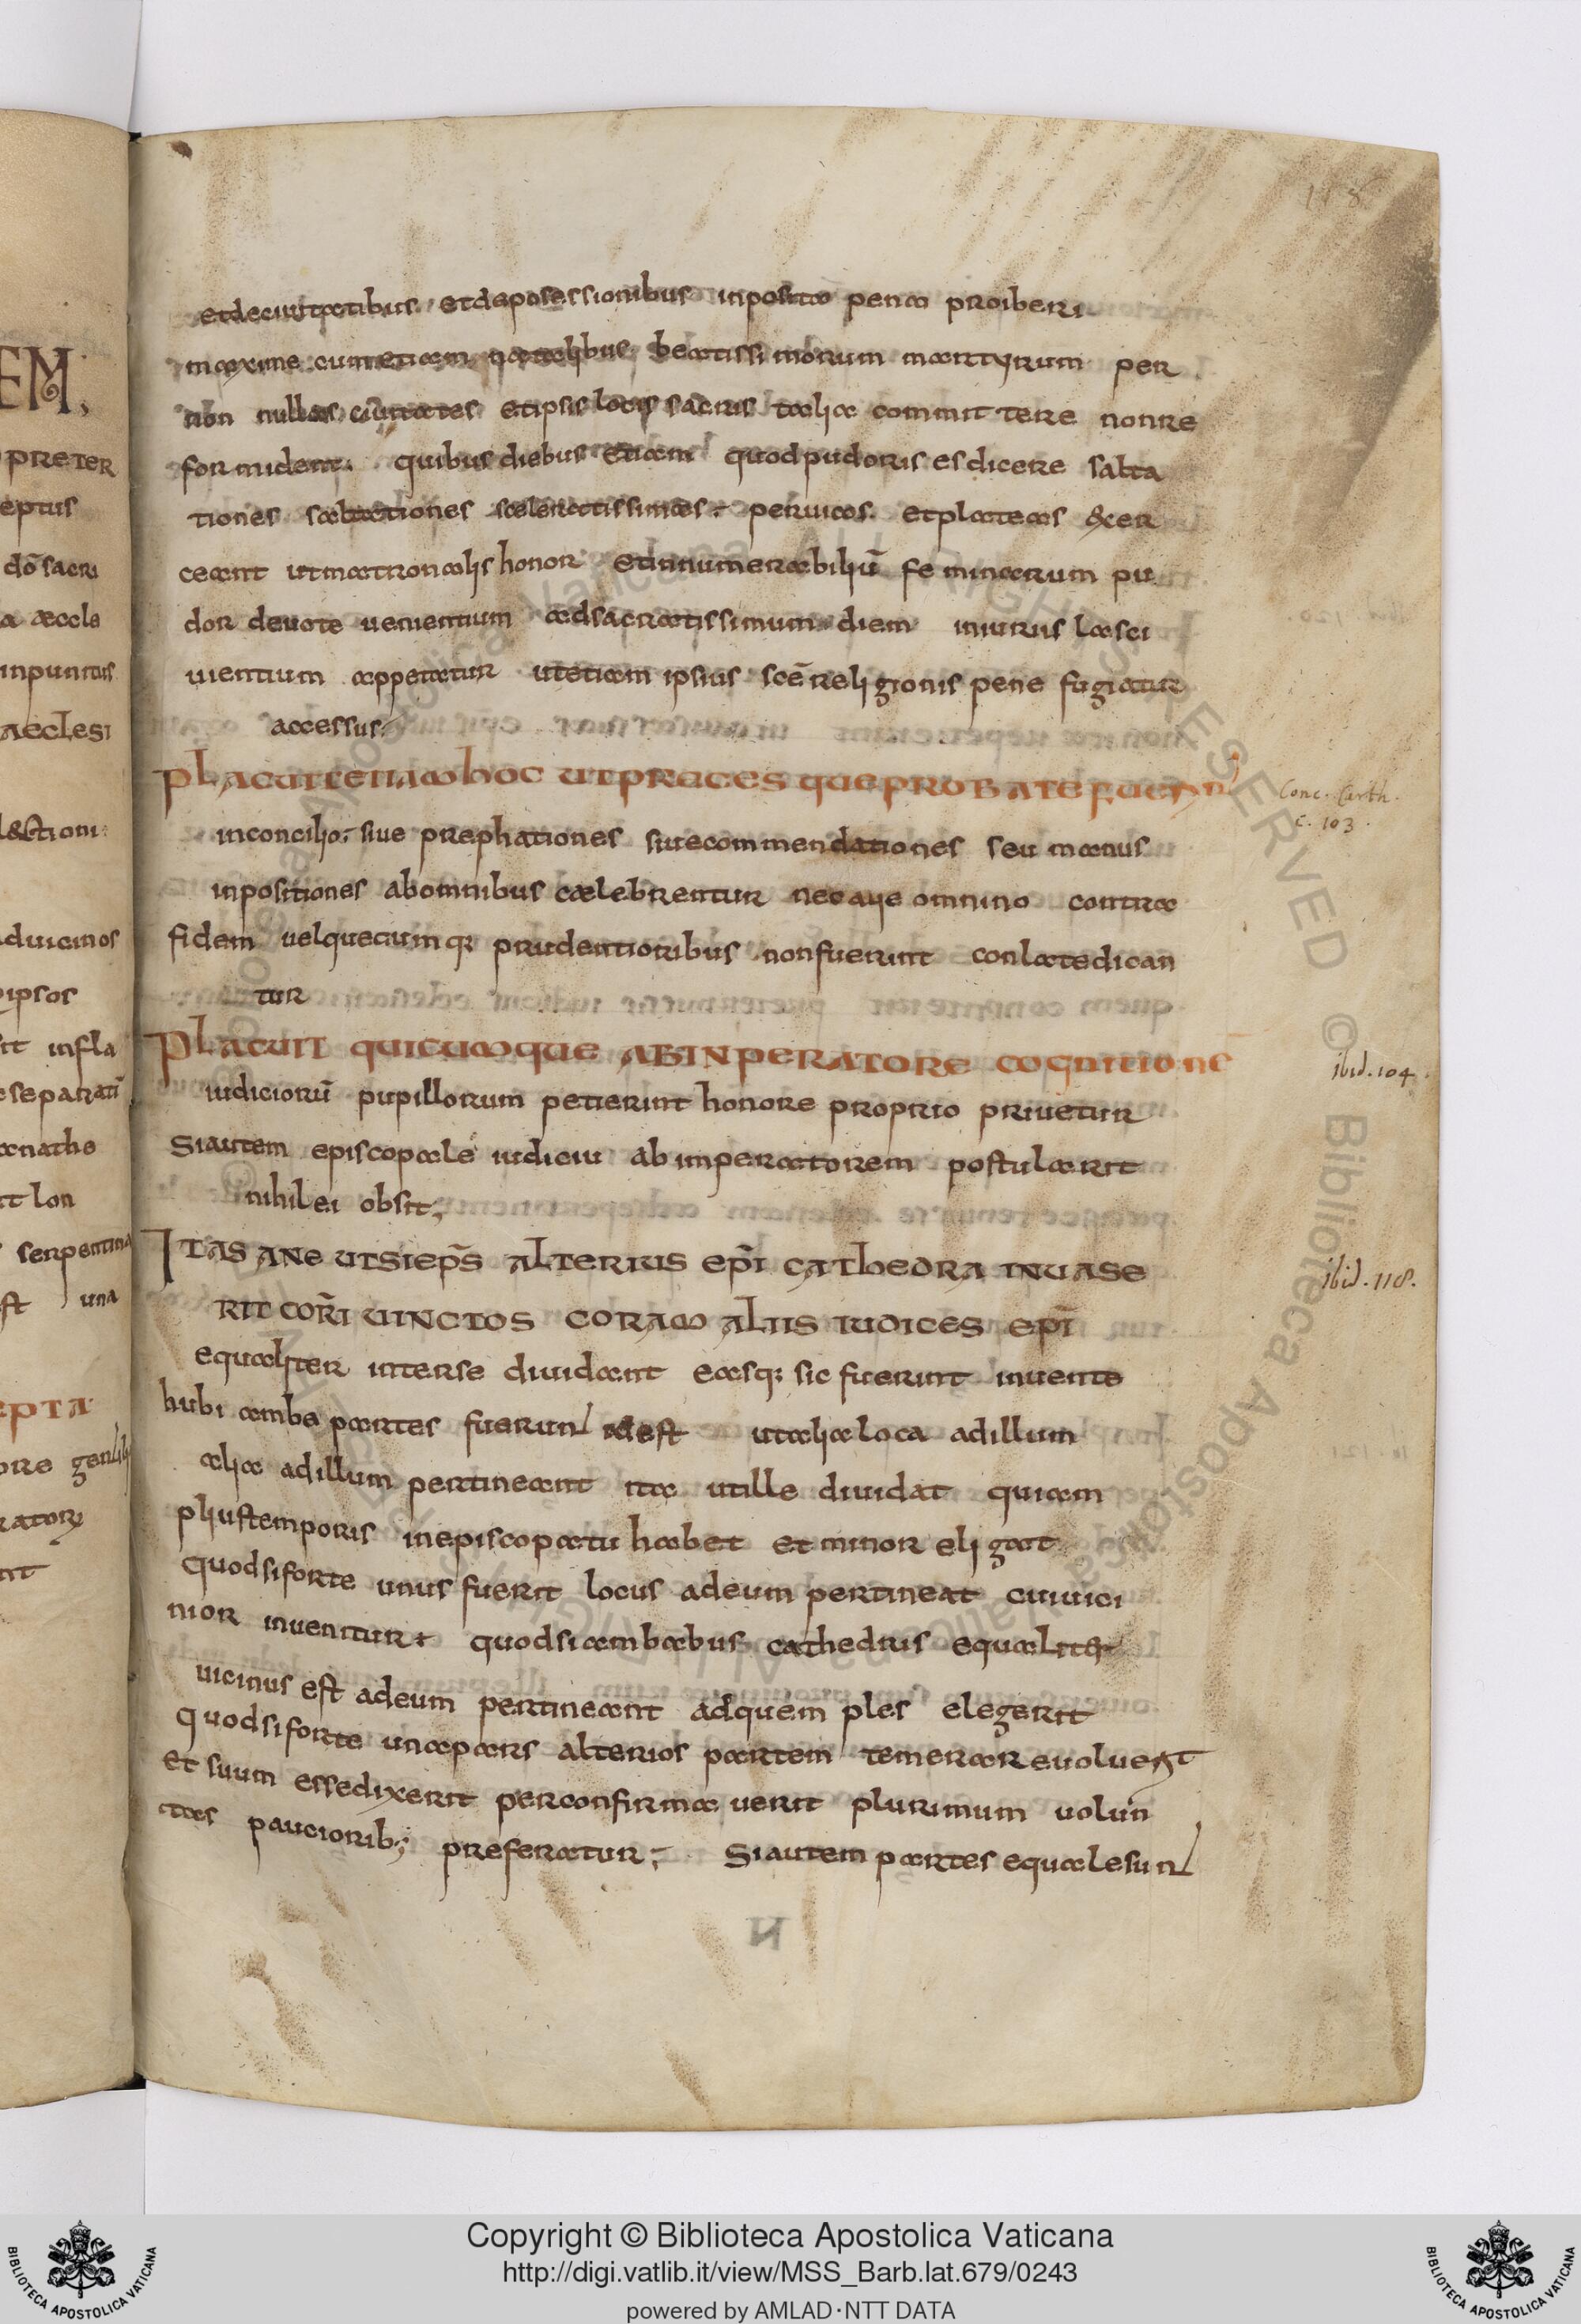 118
etdeciuitatibus etdeposessionibus inposita pena proiberi
maxime cum etiam natalibus beatissimorum martyrum per
non nullas ciuitates etipsis locis sacris talia committere nonre
formident. quibus diebus etiam quodpudoris es dicere salta
tiones saltationes sceleratissimas. peruicos. etplateas excer
ceant utmatronalis honor etinnumerabiliū feminarum pu
dor deuote uenientium adsacratissimum diem iniuriis lasci
uientium appetatur utetiam ipsius scē religionis pene fugiatur
accessus
placuitetiamhoc utpreces queprobatefuerī
inconcilio. siue prephationes siuecommendationes seu manus
inpositiones abomnibus caelebrentur nec alie omnino contra
fidem uelquecumq; prudentioribus nonfuerint conlatedican
tur
placuit quicumque abinperatore cognitione
iudiciorū pupillorum petierint honore proprio priuetur
Siautem episcopale iudiciu ab imperatorem postularit
nihilei obsit;
ITAS ANE UTSIEPS̄ ALTERIUS EPĪ CATHEDRA INUASE
RIT COR̄I UINCTOS CORAM ALIIS IUDICES EPĪ
equaliter interse diuidant easq; sic fuerint inuente
hubi ambe partes fuerunt idest utalia loca adillum
alia adillum pertineant ita utille diuidat quiam
pliustemporis inepiscopatu habet et minor eligat
Quodsiforte unus fuerit locus adeum pertineat cuiuici
nior inuenitur. quodsiambabus cathedris equaliter
uicinus est adeum pertineant adquem ples elegerit
Quodsiforte unapars alterios partem temerareuoluerit
Et suum essedixerit perconfirmauerit plurimum uolun
tas paucioribs; preferatur; Siautem partes equalesunt
Conc. Carth.
c. 103.
ibid. 104.
ibid. 118.
EM;
preter
eptus
dō sacri
a aeccle
inpunitus
aeclesi
lectioni
duicinos
ipsos
it infla
separatī
anathe
it lon
serpentina
st una
epta
ore gentili
ratori
nt
Copyright © Biblioteca Apostolica Vaticana
http://digi.vatlib.it/view/MSS_Barb.lat.679/0243
powered by AMLAD·NTT DATA
BIBLIOTECA APOSTOLICA VATICANA
BIBLIOTECA APOSTOLICA VATICANA